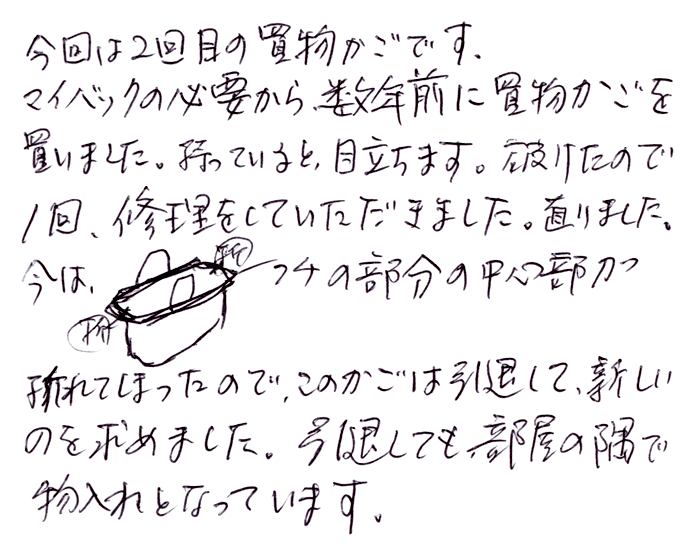 今回は2回目の買物かごです。
マイバックの必要から、数年前に買物かごを
買いました。持っていると、目立ちます。破けたので
1回、修理をしていただきました。直りました。
折
今は、 フチの部分の中心部が
折
折れてしまったので、このかごは引退して、新しい
のを求めました。引退しても、部屋の隅で
物入れとなっています。